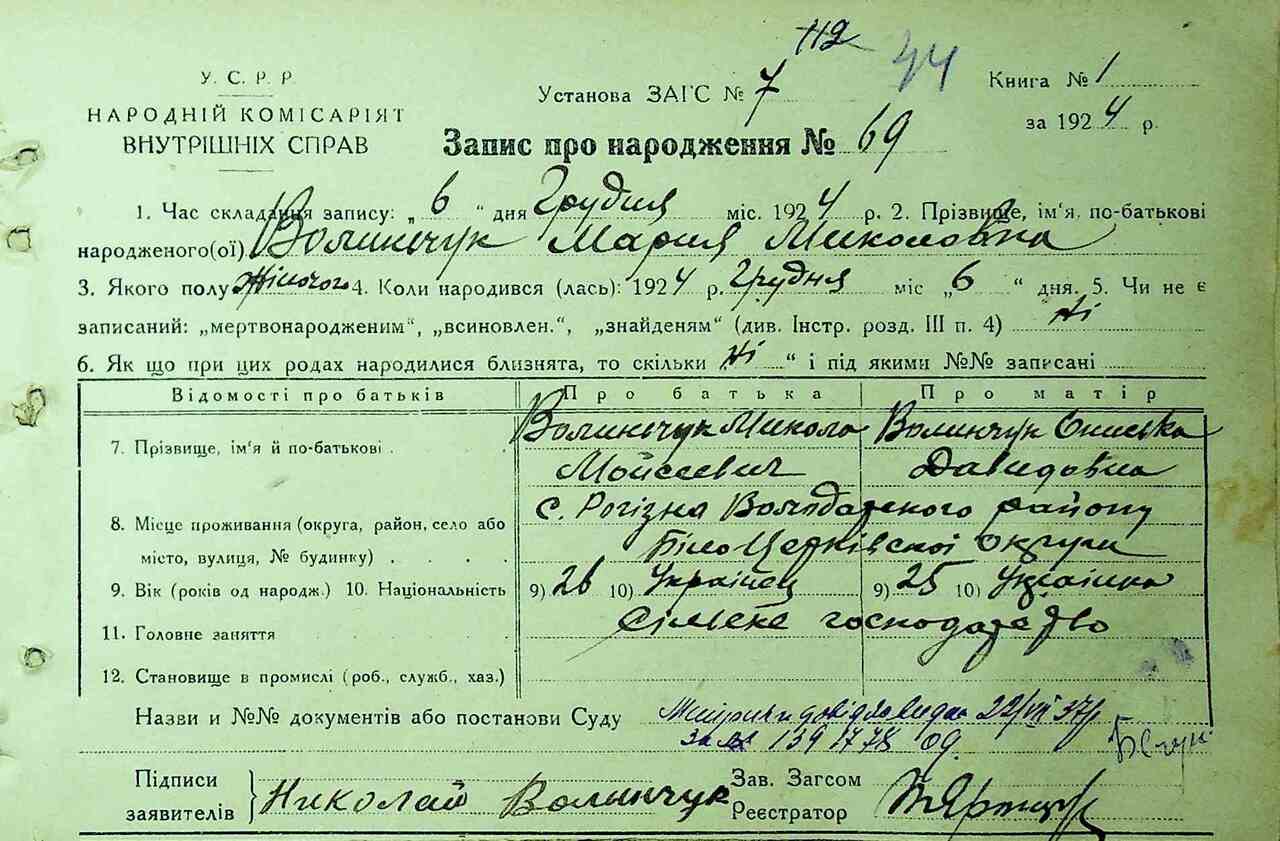 112
44
У. С. Р. Р.
НАРОДНІЙ КОМІСАРІЯТ
ВНУТРІШНІХ СПРАВ
Установа ЗАГС № 7
Книга № 1
за 1924 р.
Запис про народження № 69
1. Час складання запису: „ 6 “ дня Грудня міс. 1924 р. 2. Прізвище, ім'я, по-батькові
народженого(ої) Волинчук Мария Миколовна
3. Якого полу Жіночого 4. Коли народився (лась): 1924 р. Грудня міс „6 “ дня. 5. Чи не є
записаний: „мертвонародженим“, „всиновлен.“, „знайденям“ (див. Інстр. розд. III п. 4) Ні
6. Як що при цих родах народилися близнята, то скільки „Ні “ і під якими №№ записані
Відомості про батьків Про батька Про матір
7. Прізвище, ім'я й по-батькові Волинчук Микола Волинчук Ониська
Мойсеевич Давидовна
8. Місце проживання (округа, район, село або с. Рогізна Володарського району
місто, вулиця, № будинку) БілоЦерківської округи
9. Вік (років од народж.) 10. Національність 9) 26 10) Українец 9) 25 10) Українка
11. Головне заняття Сільське господарство
12. Становище в промислі (роб., служб., хаз.)
Назви и №№ документів або постанови Суду 22/VII 37р
за № 139
Підписи
заявителів Николай Волинчук
Зав. Загсом
Реєстратор